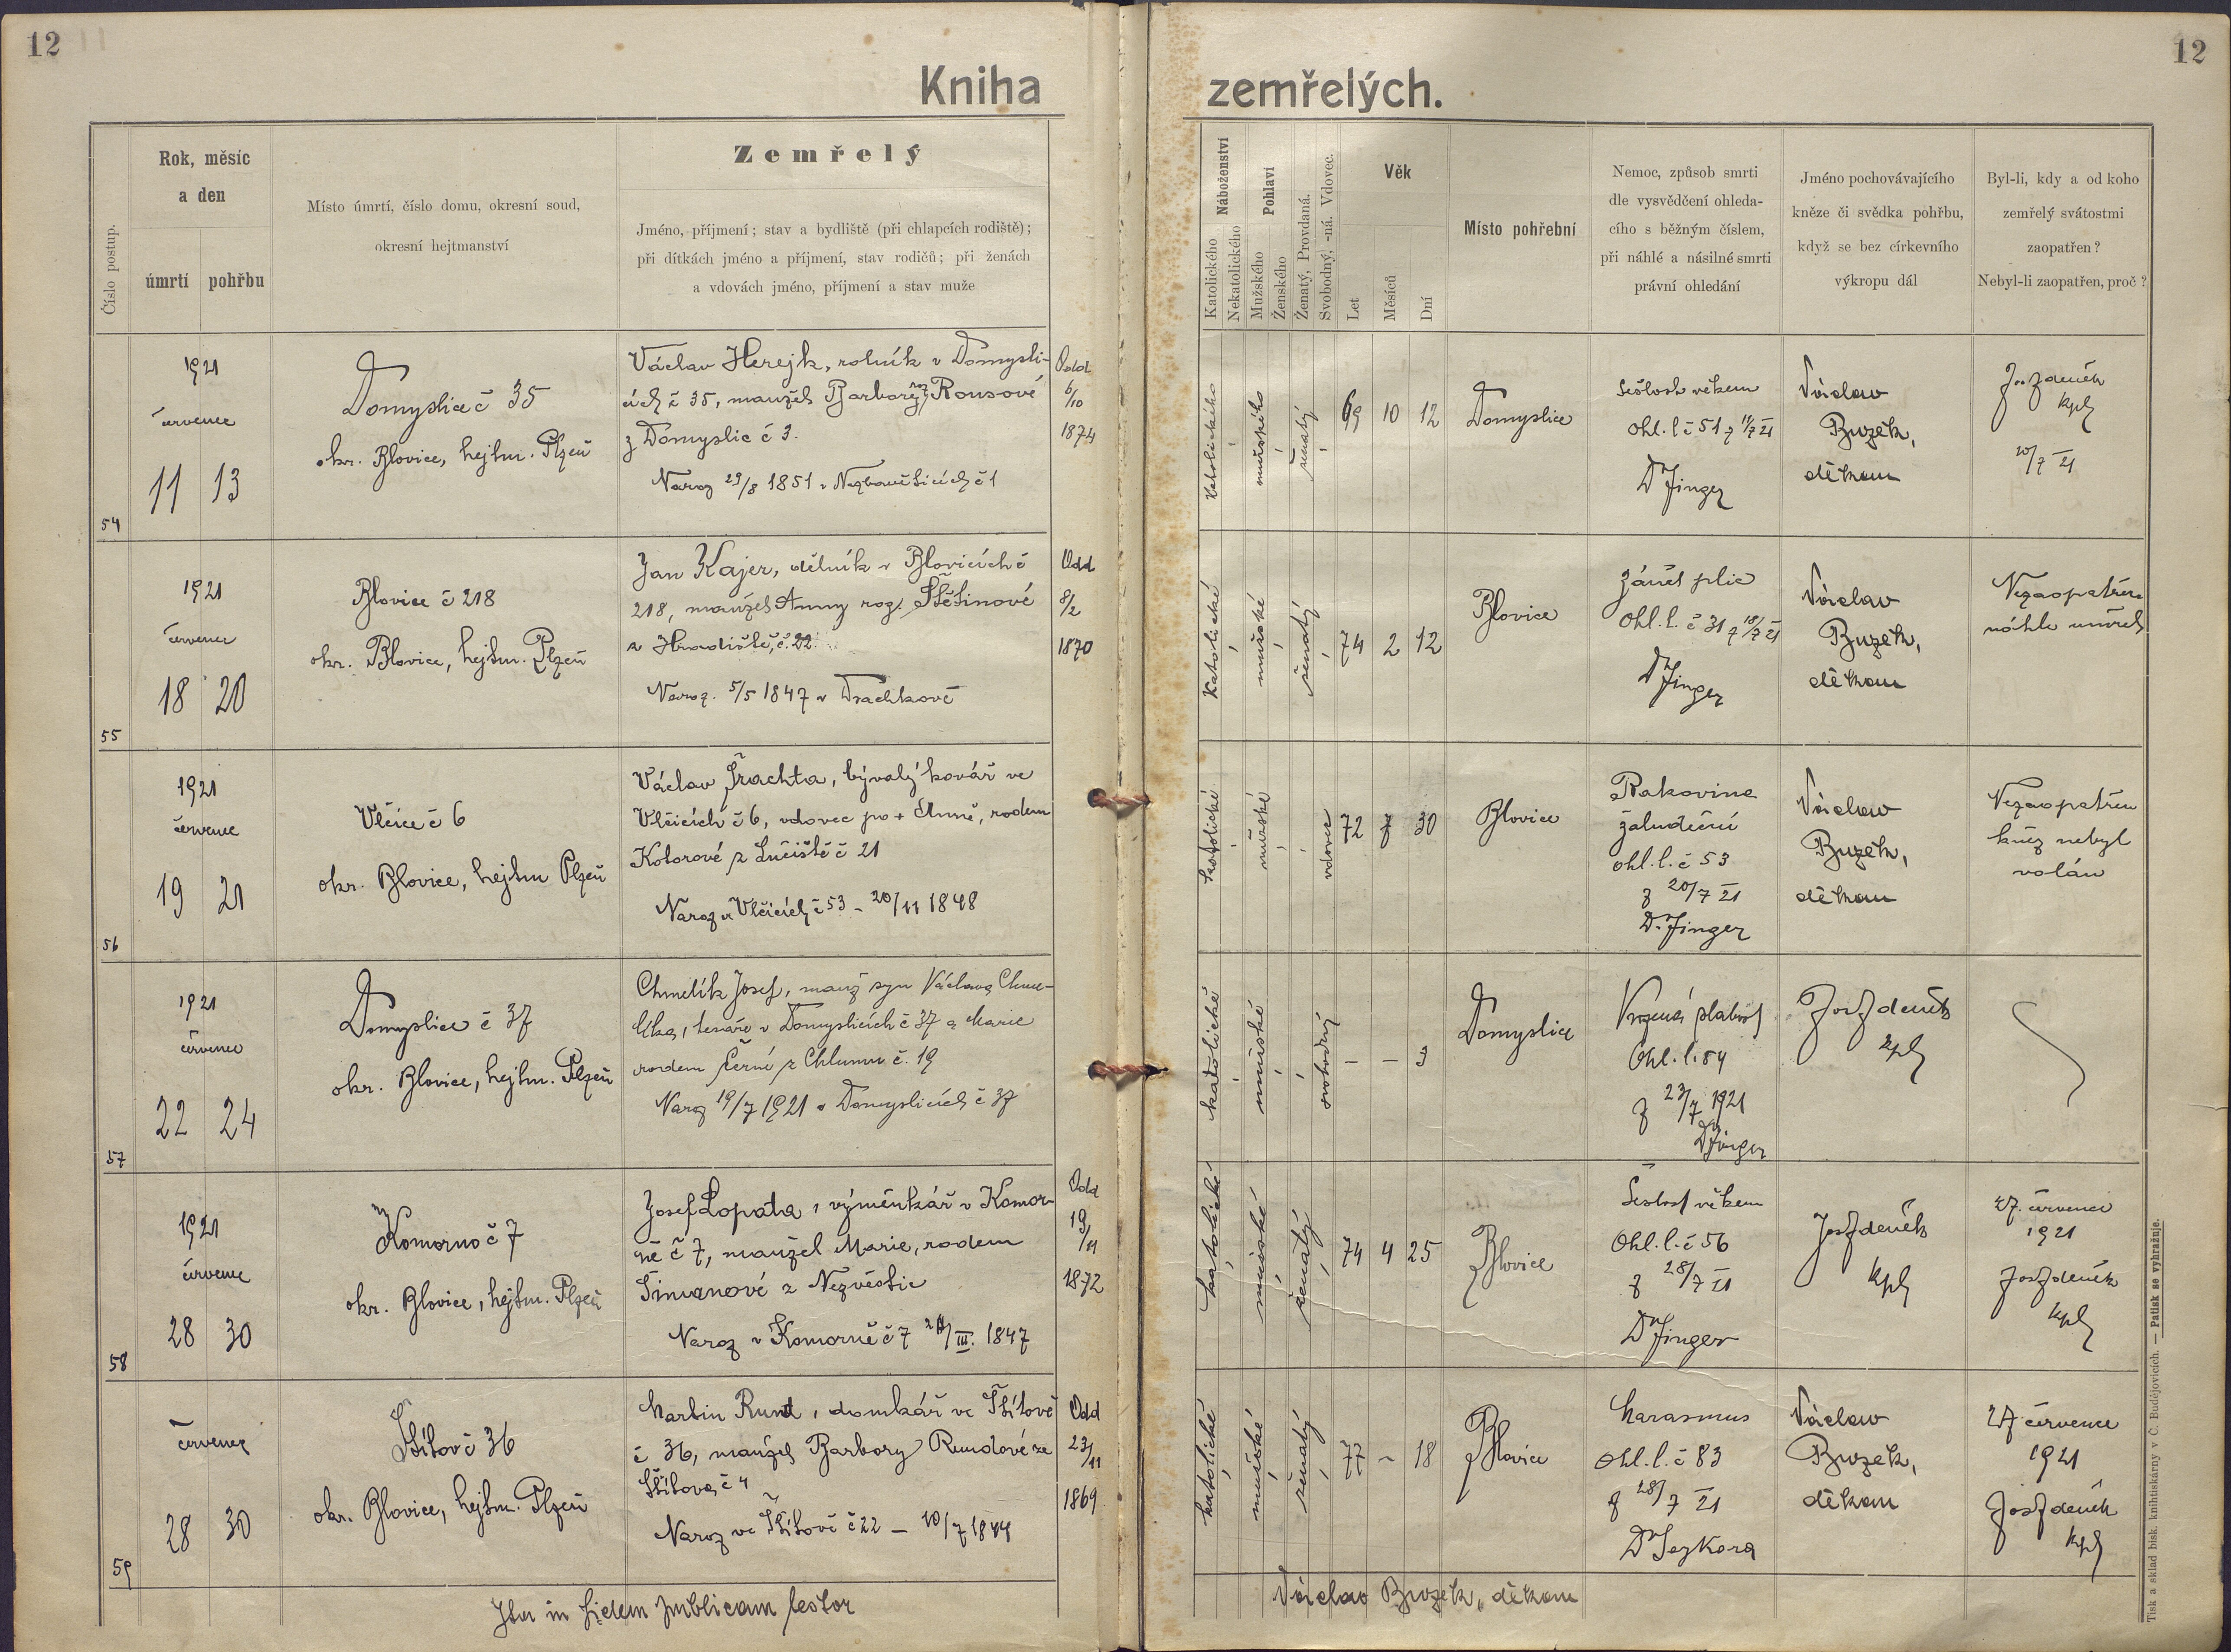 12
12
Kniha zemřelých.
Číslo postup.
Rok, měsíc
a den
úmrtí pohřbu
Místo úmrtí, číslo domu, okresní soud,
okresní hejtmanství
Zemřelý
Jméno, příjmení; stav a bydliště (při chlapcích rodiště);
při dítkách jméno a příjmení, stav rodičů; při ženách
a vdovách jméno, příjmení a stav muže
Náboženství
Katolického
Nekatolického
Pohlaví
Mužského
Ženského
Ženatý, Provdaná.
Svobodný, -ná. Vdovec.
Věk
Let
Měsíců
Dní
Místo pohřební
Nemoc, způsob smrti
dle vysvědčení ohleda-
cího s běžným číslem,
při náhlé a násilné smrti
právní ohledání
Jméno pochovávajícího
kněze či svědka pohřbu,
když se bez církevního
výkropu dál
Byl-li, kdy a od koho
zemřelý svátostmi
zaopatřen?
Nebyl-li zaopatřen, proč?
54
1921
červenec
11 13
Domyslice č 35
okr. Blovice, hejtm. Plzeň
Václav Herejk, rolník v Domysli-
cích č 35, manžel Barbory roz Rousové
z Domyslic č 3.
Naroz 29/8 1851 v č 1
Odd
6/10
1874
katolického
mužského
ženatý
69 10 12
Domyslice
Sešlost věkem
ohl. l č 51 z 11/7 21
Dr Jinger
Václav
Buzek,
děkan
Jos Zdeněk
kpl
10/7 21
55
1921
červenec
18 20
Blovice č 218
okr. Blovice, hejtm. Plzeň
Jan Kajer, dělník v Blovicích č
218, manžel Anny roz. Štětinové
z Hradiště, č. 22.
Naroz. 5/5 1847 v Drachkově
Odd
8/2
1870
katolické
mužské
ženatý
74 2 12
Blovice
zánět plic
Ohl. l. č 31 z 18/7 21
Dr Jinger
Václav
Buzek,
děkan
Nezaopatřen
náhle umřel
56
1921
červenec
19 21
Vlčice č 6
okr. Blovice, hejtm Plzeň
Václav Šrachta, bývalý kovář ve
Vlčicích č 6, vdovec po + Anně, rodem
Kotorové z Lučiště č 21
Naroz v Vlčicích č 53 - 20/11 1848
katolické
mužské
vdovec
72 7 30
Blovice
Rakovina
žaludeční
ohl. l. č 53
z 20/7 21
Dr. Jinger
Václav
Buzek,
děkan
Nezaopatřen
kněz nebyl
volán
57
1921
červenec
22 24
Domyslice č 37
okr. Blovice, hejtm. Plzeň
Chmelík Josef, manž syn Václava Chme-
líka, tesaře v Domyslicích č 37 a Marie
rodem Černé z Chlumu č. 19
Naroz 19/7 1921 v Domyslicích č 37
katolické
mužské
svobodný
- - 3
Domyslice
Vrozená slabost
Ohl. l. 84
z 23/7 1921
Dr Jinger
Jos Zdeněk
kpl
58
1921
červenec
28 30
Komorno č 7
okr. Blovice, hejtm. Plzeň
Josef Lopata, výměnkář v Komor-
ně č 7, manžel Marie, rodem
Šimanové z Nezvěstic
Naroz v Komorně č 7 III. 1847
Odd
19/11
1872
katolické
mužské
ženatý
74 4 25
Blovice
Sešlost věkem
Ohl. l. č 56
z 28/7 21
Dr Jinger
Jos Zdeněk
kpl
27. července
1921
Jos Zdeněk
kpl
59
červenec
28 30
Štítov č 36
okr. Blovice, hejtm. Plzeň
Martin Rund, domkář ve Štítově
č 36, manžel Barbory Rundové ze
Štítova č 4
Naroz ve Štítově č 22 - 10/7 1844
Odd
23/11
1869
katolické
mužské
ženatý
77 - 18
Blovice
Marasmus
Ohl. l. č 83
z 28/7 21
Dr Sejkora
Václav
Buzek,
děkan
27 července
1921
Jos Zdeněk
kpl
Ita in fidem publicam testor
Václav Buzek, děkan
Tisk a sklad bisk. knihtiskárny v Č. Budějovicích. — Patisk se vyhražuje.